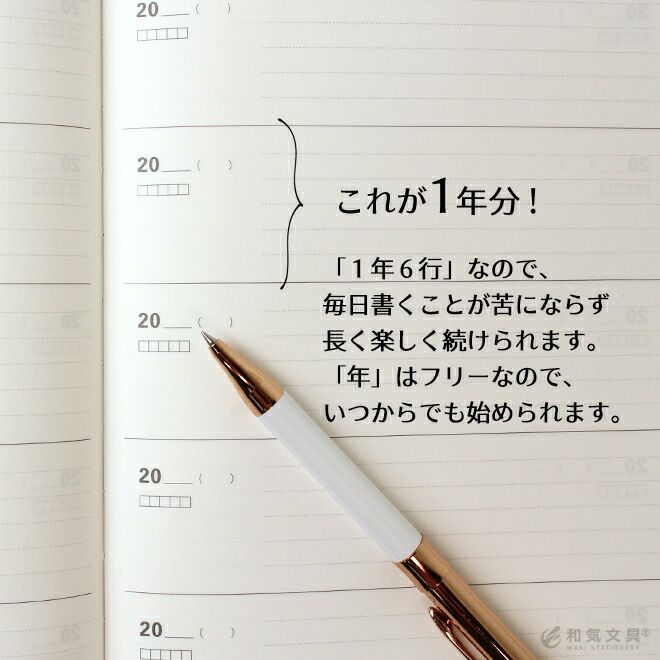 20___ (   )
20___ (   )
これが1年分！
「１年６行」なので、
毎日書くことが苦にならず
長く楽しく続けられます。
「年」はフリーなので、
いつからでも始められます。
20___ (   )
20___ (   )
20___ (   )
和気文具®
WAKI STATIONERY